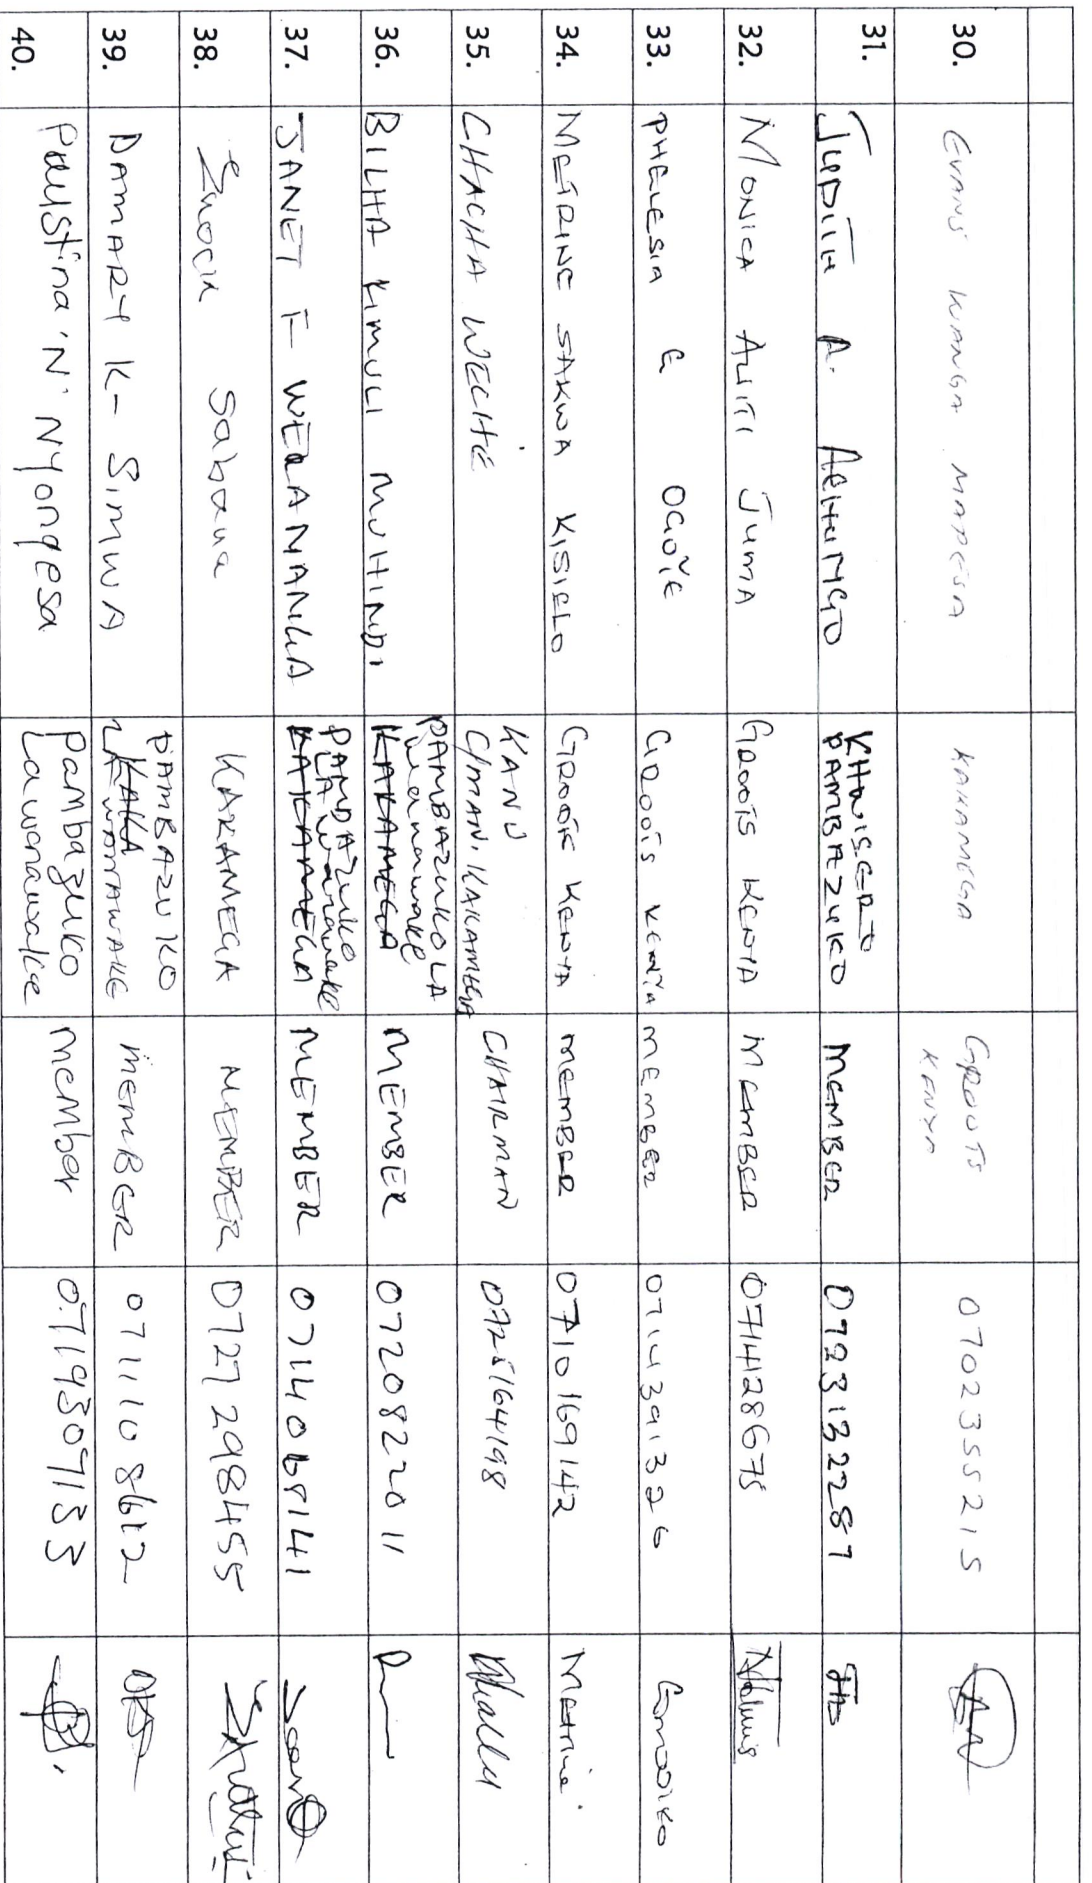 30. EVANS WANGA MAPESA KAKAMEGA GROOTS KENYA 0702355215
31. JUDITH A. ACHUNGO KHWISERO PAMBAZUKO MEMBER 0723132287
32. MONICA AUTI JUMA GROOTS KENYA MEMBER 0714128675
33. PHELESIA G OGOYE GROOTS KENYA MEMBER 0714391326
34. METRINE SAKWA KISIELO GROOTS KENYA MEMBER 0710169142 Metrine
35. CHACHA WECHE KANU C/MAN. KAKAMEGA CHAIRMAN 0725164198
36. BILHA KIMULI MUHINDI PAMBAZUKO LA wanawake KAKAMEGA MEMBER 0720822011
37. JANET F WERAMANKA PAMBAZUKO LA wanawake KAKAMEGA MEMBER 0714068141
38. Enock Sabana KAKAMEGA MEMBER 0727298455
39. DAMARY K- SIMWA PAMBAZUKO LA WANAWAKE MEMBER 0711108612
40. Paustina 'N' Nyongesa Pambazuko Lawanawake member 0719309133